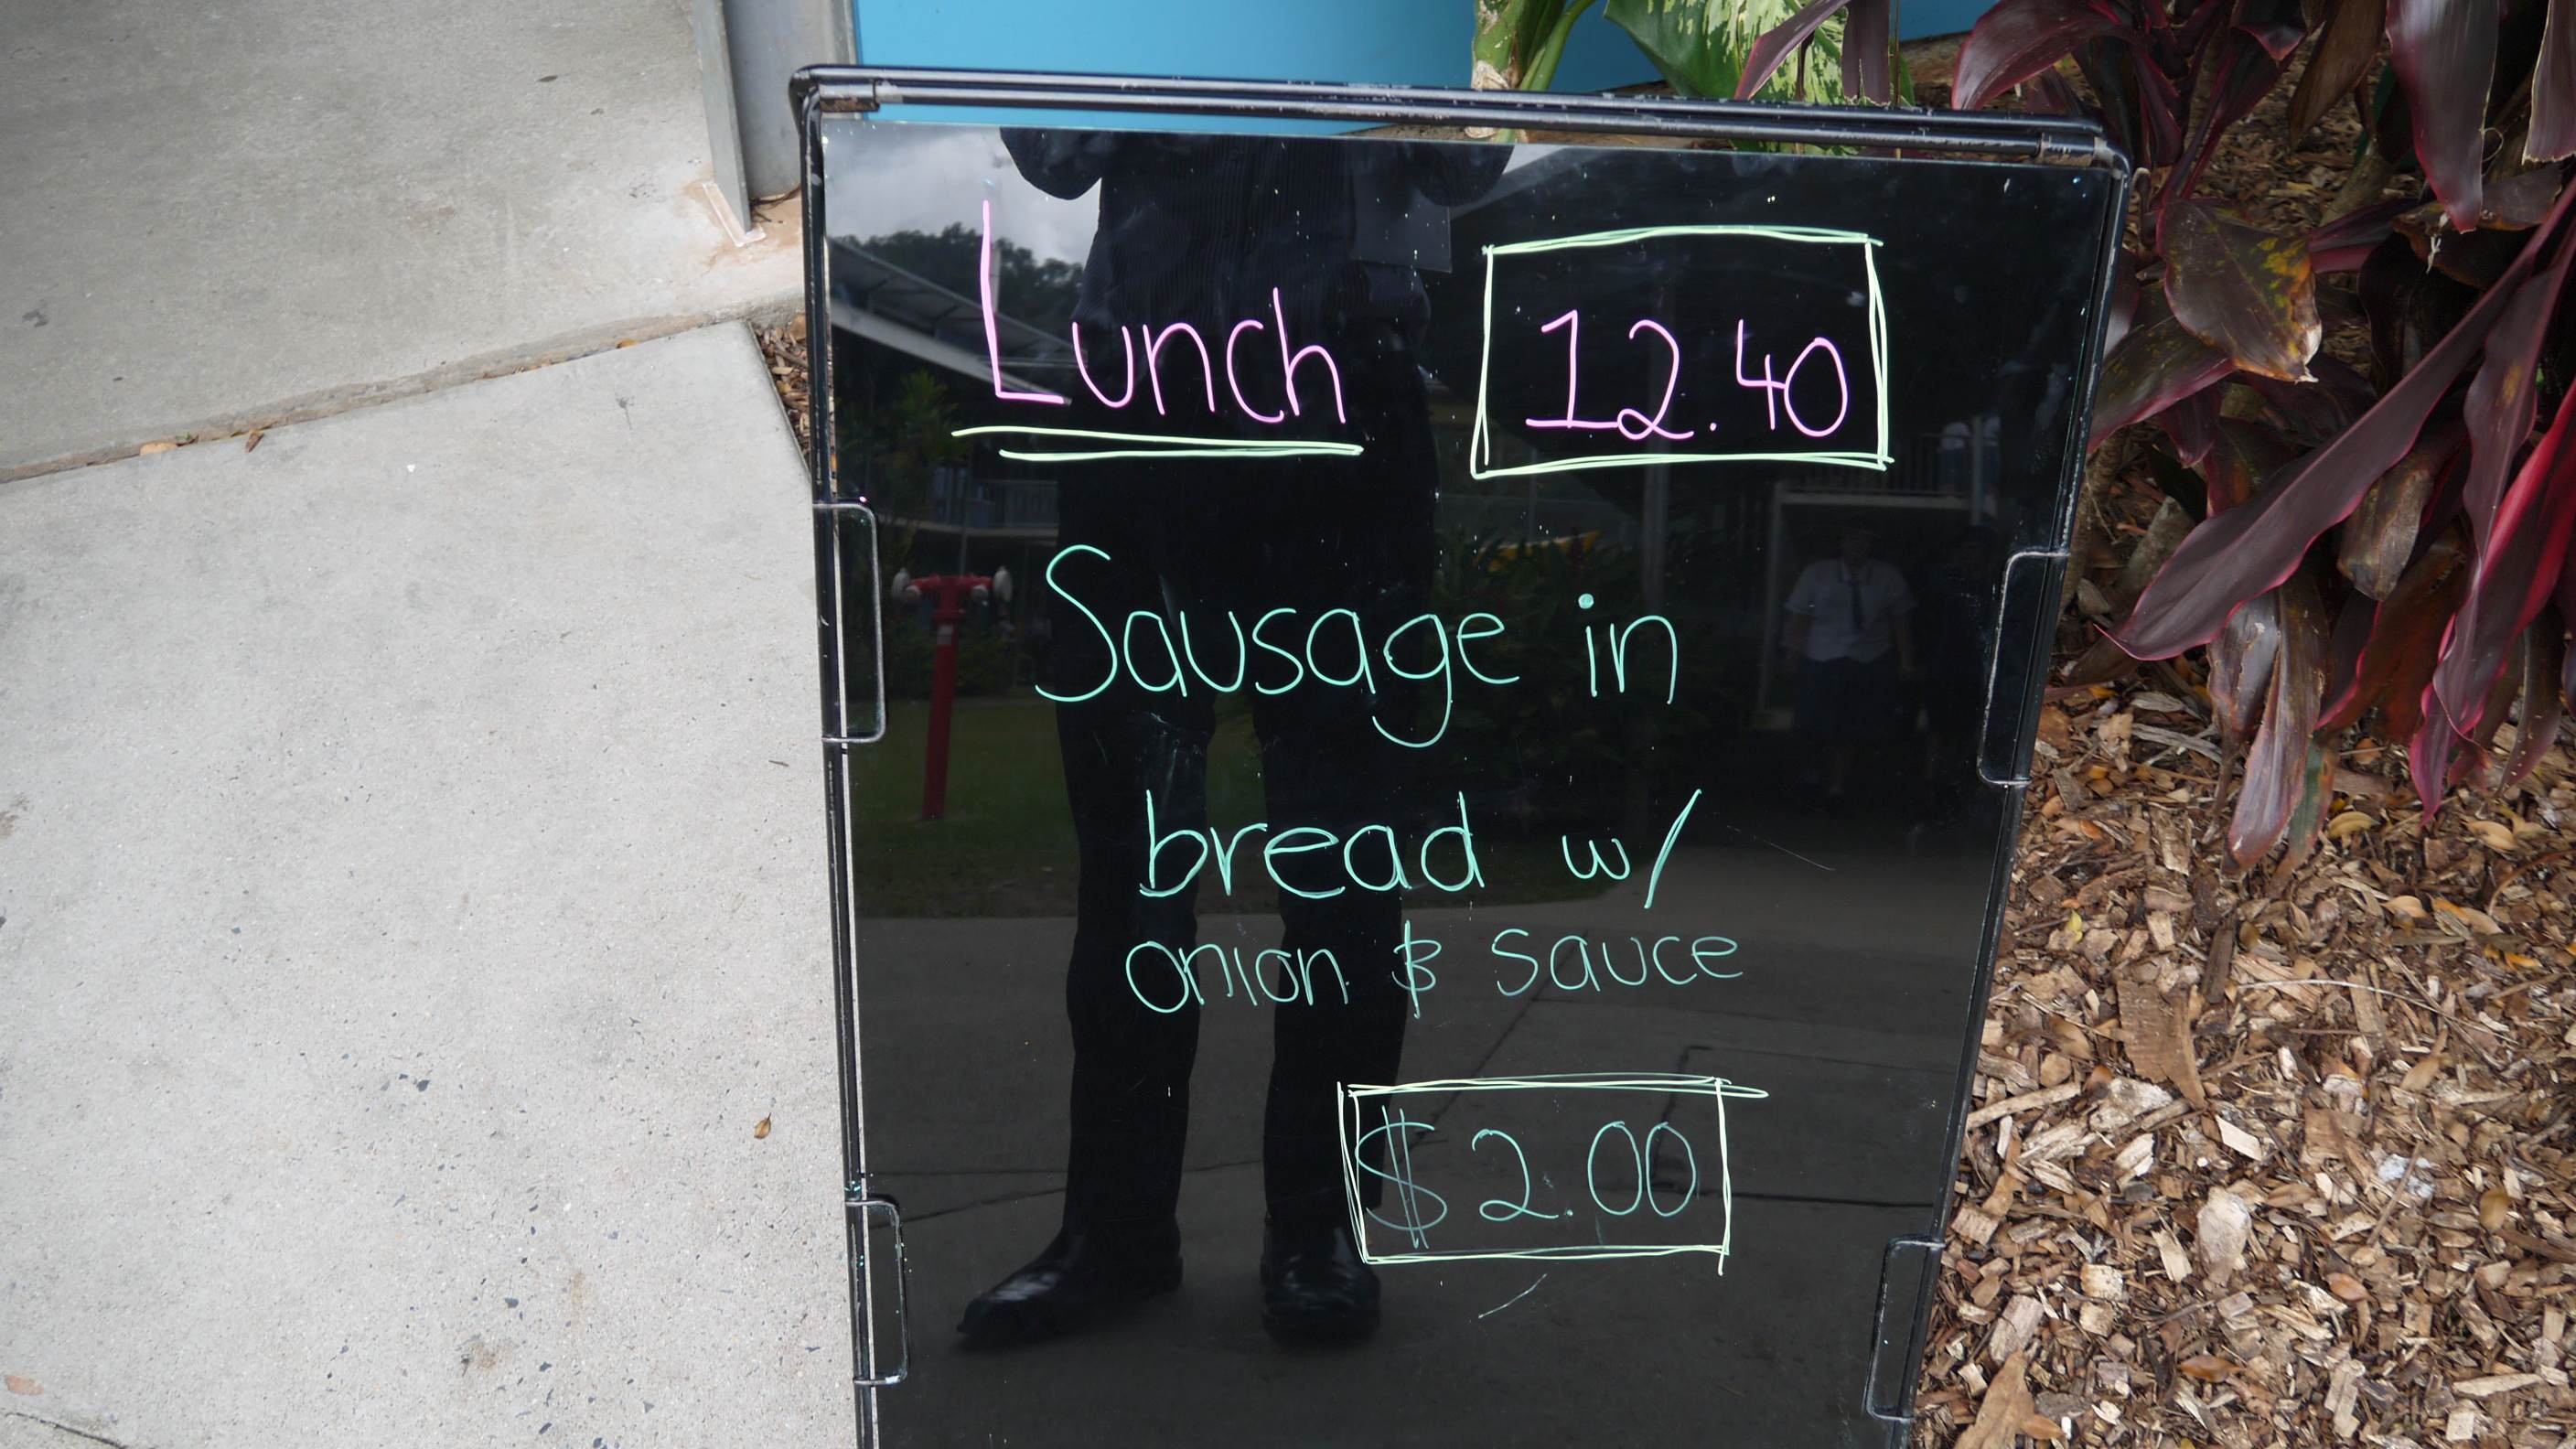 Lunch 12.40
Sausage in
bread w/
onion & sauce
$2.00